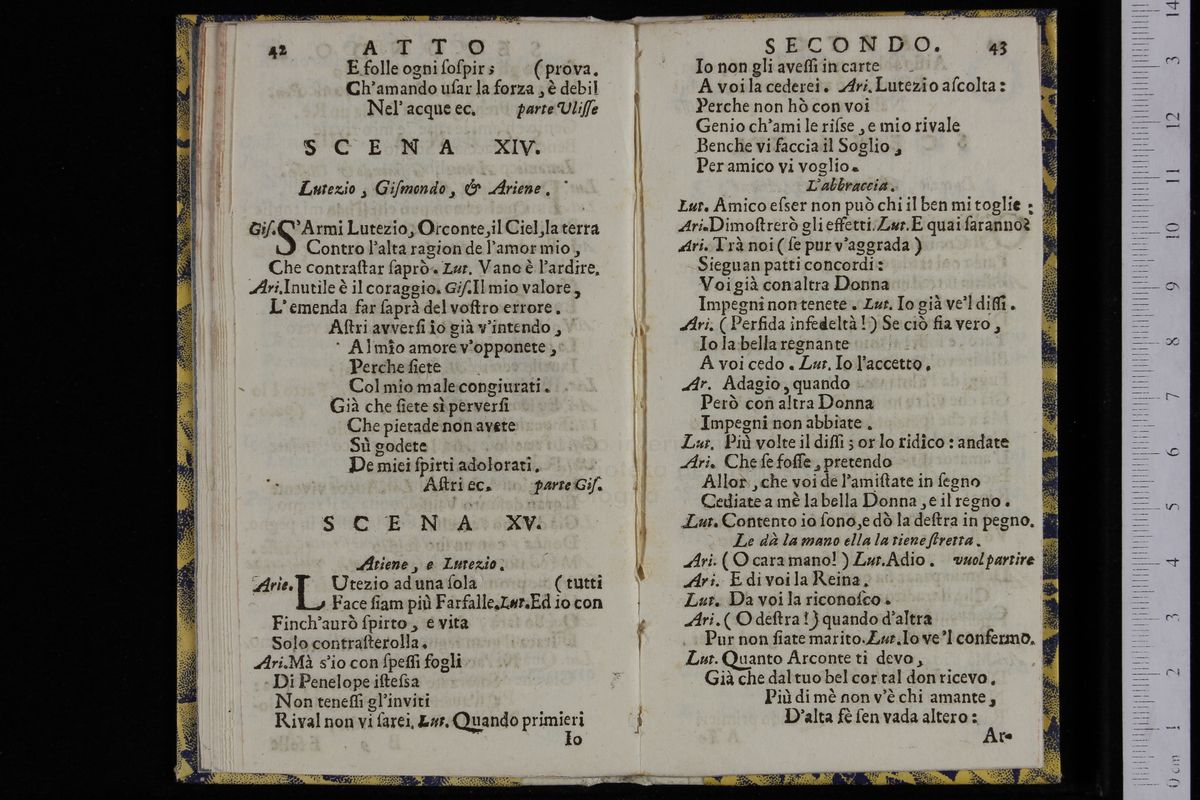 42 ATTO
E folle ogni ſoſpir; (prova.
Ch'amando uſar la forza, è debil
Nel' acque ec. parte Uliſſe
SCENA XIV.
Lutezio, Giſmondo, & Ariene.
Giſ. S'Armi Lutezio, Orconte, il Ciel, la terra
Contro l'alta ragion de l'amor mio,
Che contraſtar ſaprò. Lut. Vano è l'ardire.
Ari. Inutile è il coraggio. Giſ. Il mio valore,
L'emenda far ſaprà del voſtro errore.
Aſtri avverſi io già v'intendo,
Al mio amore v'opponete,
Perche ſiete
Col mio male congiurati.
Già che ſiete sì perverſi
Che pietade non avete
Sù godete
De miei ſpirti adolorati.
Aſtri ec. parte Giſ.
SCENA XV.
Atiene, e Lutezio.
Arie. LUtezio ad una ſola (tutti
Face ſiam più Farfalle. Lut. Ed io con
Finch'aurò ſpirto, e vita
Solo contraſterolla.
Ari. Mà s'io con ſpeſſi fogli
Di Penelope iſteſsa
Non teneſſi gl'inviti
Rival non vi ſarei. Lut. Quando primieri
Io
SECONDO. 43
Io non gli aveſſi in carte
A voi la cederei. Ari. Lutezio aſcolta:
Perche non hò con voi
Genio ch'ami le riſse, e mio rivale
Benche vi faccia il Soglio,
Per amico vi voglio.
L'abbraccia.
Lut. Amico eſser non può chi il ben mi toglie:
Ari. Dimoſtrerò gli effetti. Lut. E quai ſaranno?
Ari. Trà noi (ſe pur v'aggrada)
Sieguan patti concordi:
Voi già con altra Donna
Impegni non tenete. Lut. Io già ve'l diſſi.
Ari. (Perfida infedeltà!) Se ciò fia vero,
Io la bella regnante
A voi cedo. Lut. Io l'accetto.
Ar. Adagio, quando
Però con altra Donna
Impegni non abbiate.
Lut. Più volte il diſſi; or lo ridico: andate
Ari. Che ſe foſſe, pretendo
Allor, che voi de l'amiſtate in ſegno
Cediate a mè la bella Donna, e il regno.
Lut. Contento io ſono, e dò la deſtra in pegno.
Le dà la mano ella la tiene ſtretta.
Ari. (O cara mano!) Lut. Adio. vuol partire
Ari. E di voi la Reina.
Lut. Da voi la riconoſco.
Ari. (O deſtra!) quando d'altra
Pur non ſiate marito. Lut. Io ve'l confermo.
Lut. Quanto Arconte ti devo,
Già che dal tuo bel cor tal don ricevo.
Più di mè non v'è chi amante,
D'alta fè ſen vada altero:
Ar-